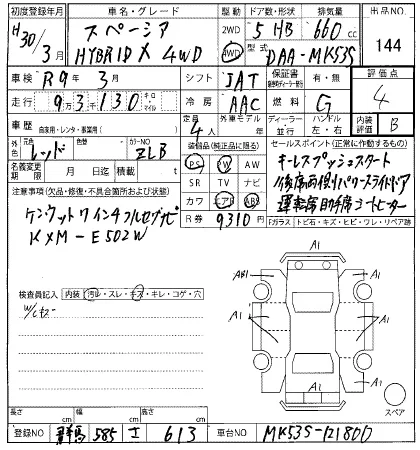 初度登録年月 車名・グレード 駆動 ドア数・形状 排気量 出品NO
H30/3月 スペーシア HYBRID X 4WD 2WD 4WD 5 HB 660cc 144
型式 DAA-MK53S
車検 R9年3月 シフト IAT 保証書 有・無 評価点 4
走行 93130 キロ・マイル 冷房 AAC 燃料 G
車歴 自家用・レンタ・事業用( ) 定員 4人 外車モデル 年 ディーラー 並行 ハンドル 左・右 内装評価 B
外色 元色 レッド 色替 カラーNO ZLB 装備品(純正品に限る) セールスポイント(正常に作動するもの)
名義変更期限 月 日迄 積載量 t PS PW AW キーレスプッシュスタート
注意事項(欠品・修復・不具合箇所および状態) SR TV ナビ 後席両側パワースライドドア
ケンウッド7インチフルセグナビ カワ エアB ABS 運転席助手席シートヒーター
KXM-E502W R券 9310円 Fガラス トビ石・キズ・ヒビ・ワレ・リペア跡
A1
AB1 A1
検査員記入 内装 汚レ・スレ・キズ・キレ・コゲ・穴
A1 A1
A1 スペア
長さ cm 幅 cm 高さ cm
登録NO 群馬 585 さ 613 車台NO MK53S-121800